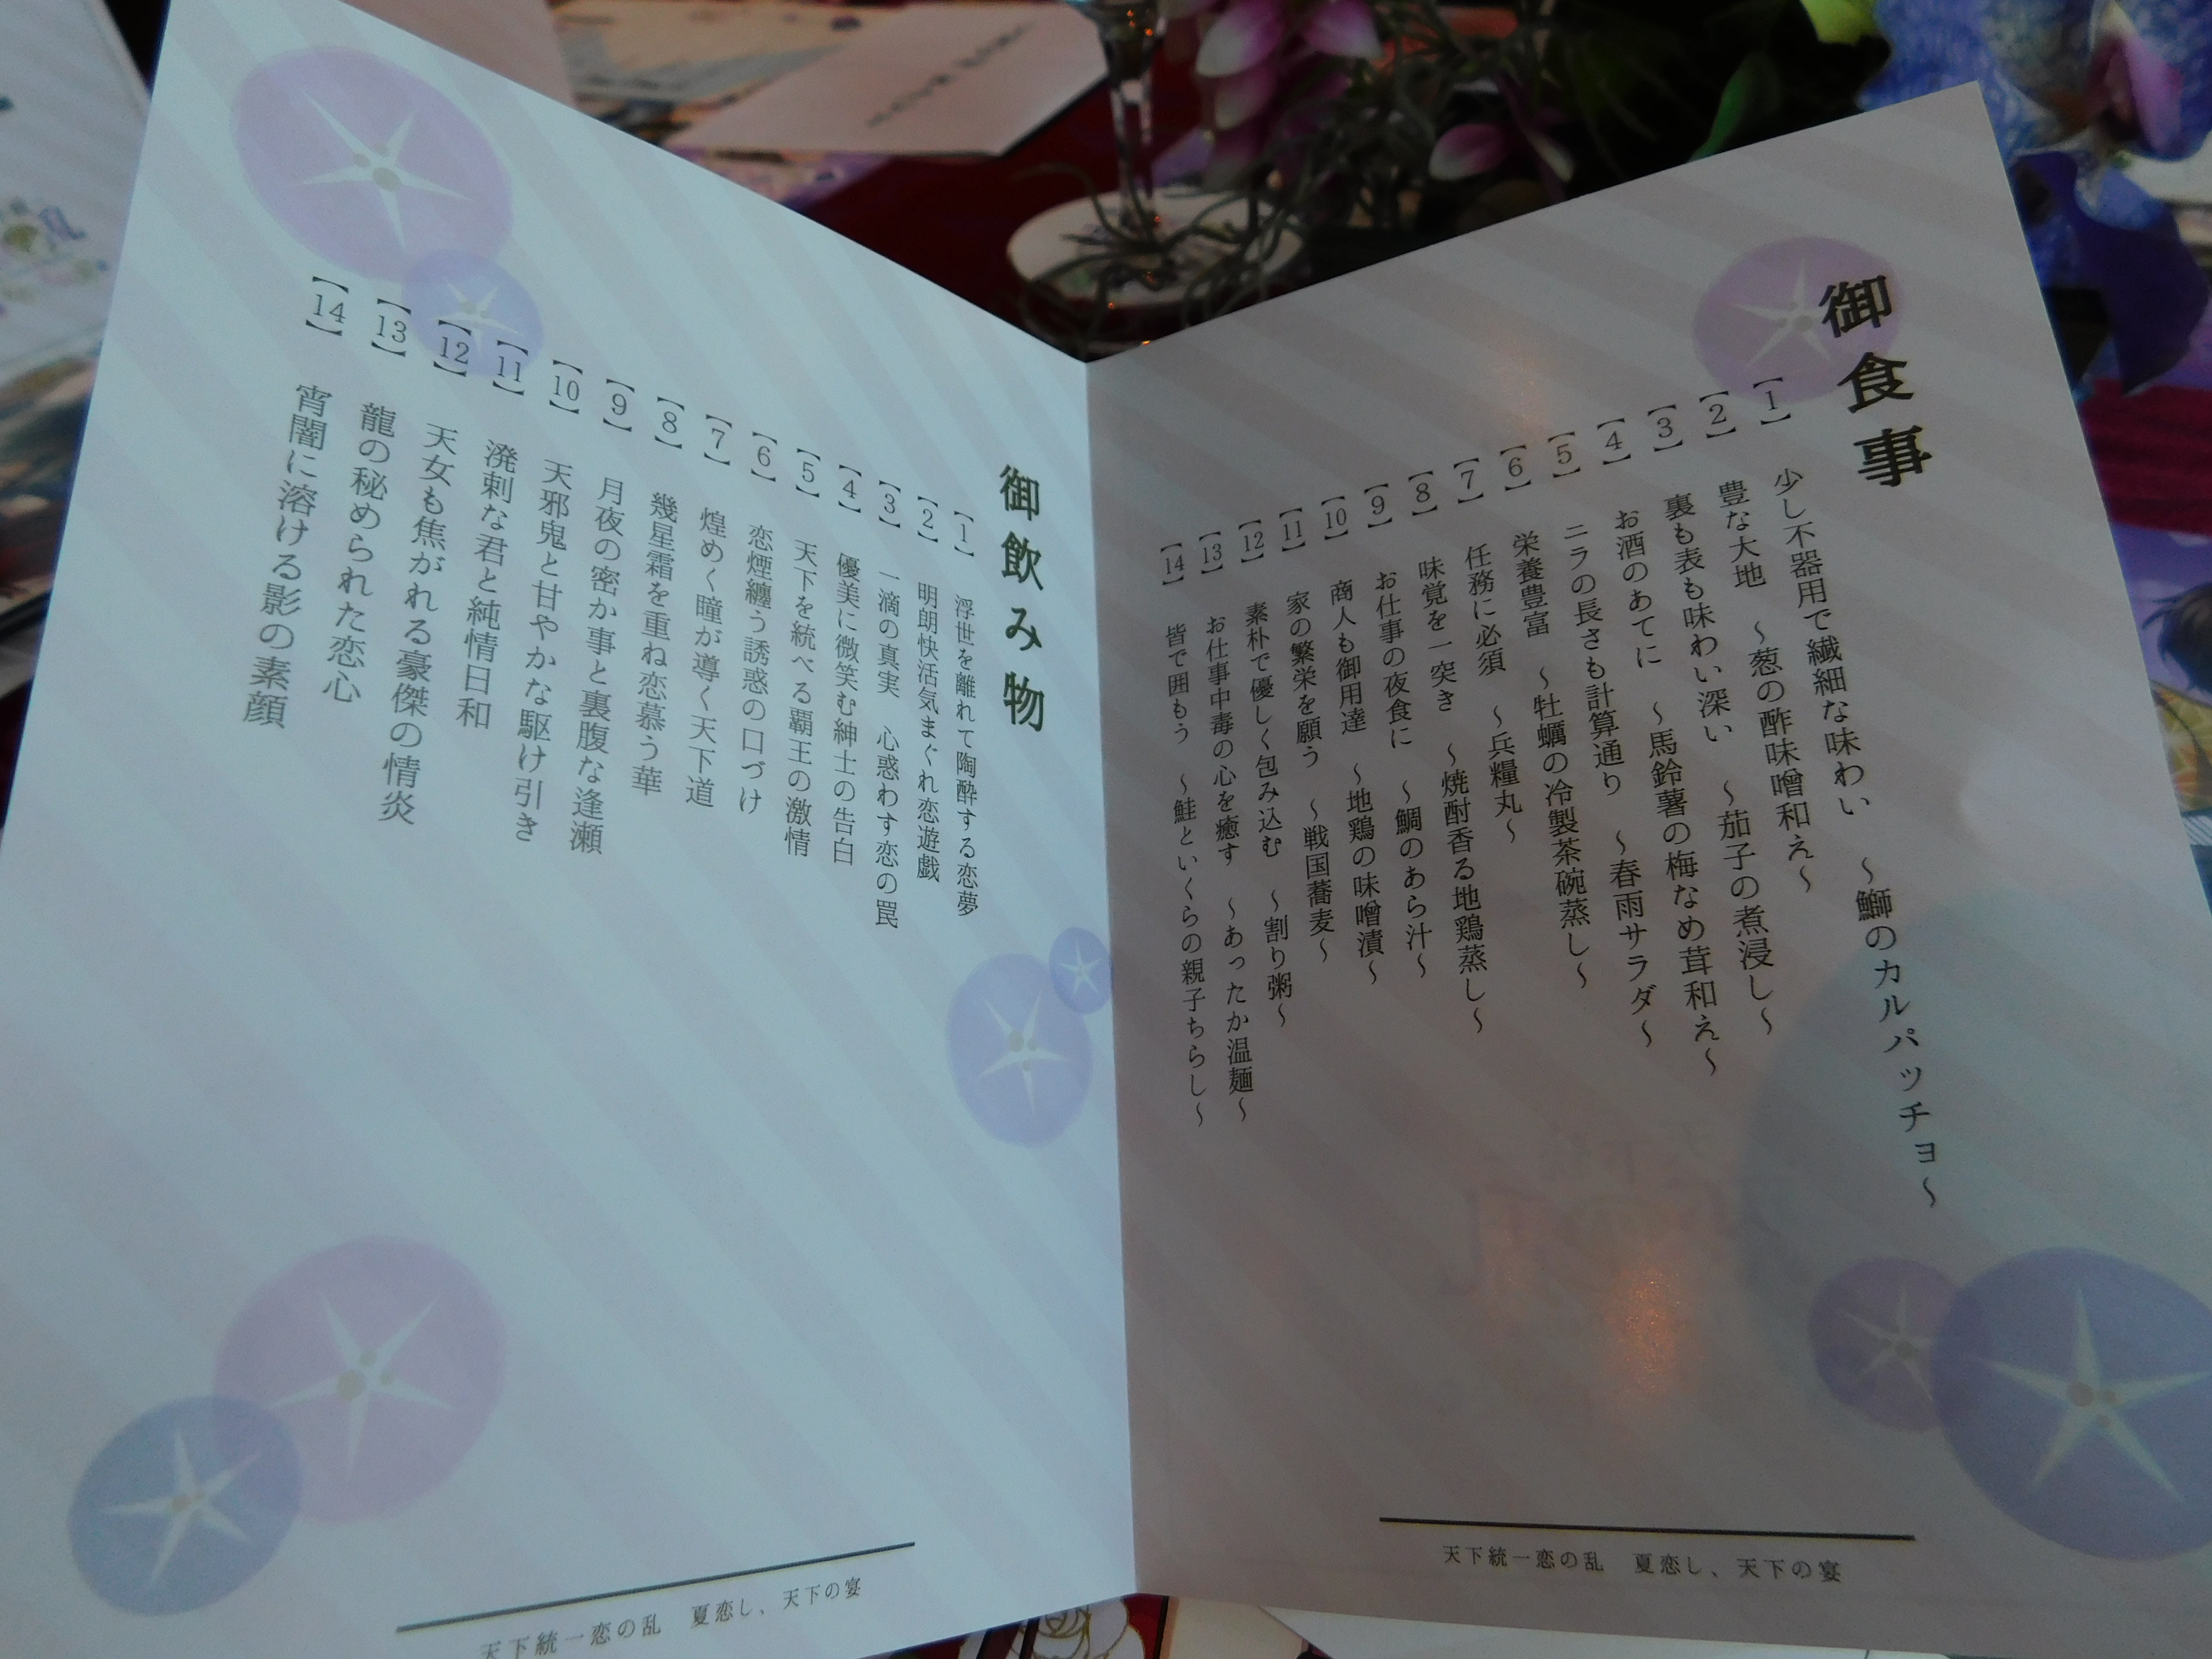 御食事
【1】 少し不器用で繊細な味わい ～鰤のカルパッチョ～
【2】 豊な大地 ～葱の酢味噌和え～
【3】 裏も表も味わい深い ～茄子の煮浸し～
【4】 お酒のあてに ～馬鈴薯の梅なめ茸和え～
【5】 ニラの長さも計算通り ～春雨サラダ～
【6】 栄養豊富 ～牡蠣の冷製茶碗蒸し～
【7】 任務に必須 ～兵糧丸～
【8】 味覚を一突き ～焼酎香る地鶏蒸し～
【9】 お仕事の夜食に ～鯛のあら汁～
【10】 商人も御用達 ～地鶏の味噌漬～
【11】 家の繁栄を願う ～戦国蕎麦～
【12】 素朴で優しく包み込む ～割り粥～
【13】 お仕事中毒の心を癒す ～あったか温麺～
【14】 皆で囲もう ～鮭といくらの親子ちらし～
天下統一恋の乱 夏恋し、天下の宴
御飲み物
【1】 浮世を離れて陶酔する恋夢
【2】 明朗快活気まぐれ恋遊戯
【3】 一滴の真実 心惑わす恋の罠
【4】 優美に微笑む紳士の告白
【5】 天下を統べる覇王の激情
【6】 恋煙纏う誘惑の口づけ
【7】 煌めく瞳が導く天下道
【8】 幾星霜を重ね恋慕う華
【9】 月夜の密か事と裏腹な逢瀬
【10】 天邪鬼と甘やかな駆け引き
【11】 溌剌な君と純情日和
【12】 天女も焦がれる豪傑の情炎
【13】 龍の秘められた恋心
【14】 宵闇に溶ける影の素顔
天下統一恋の乱 夏恋し、天下の宴
乱